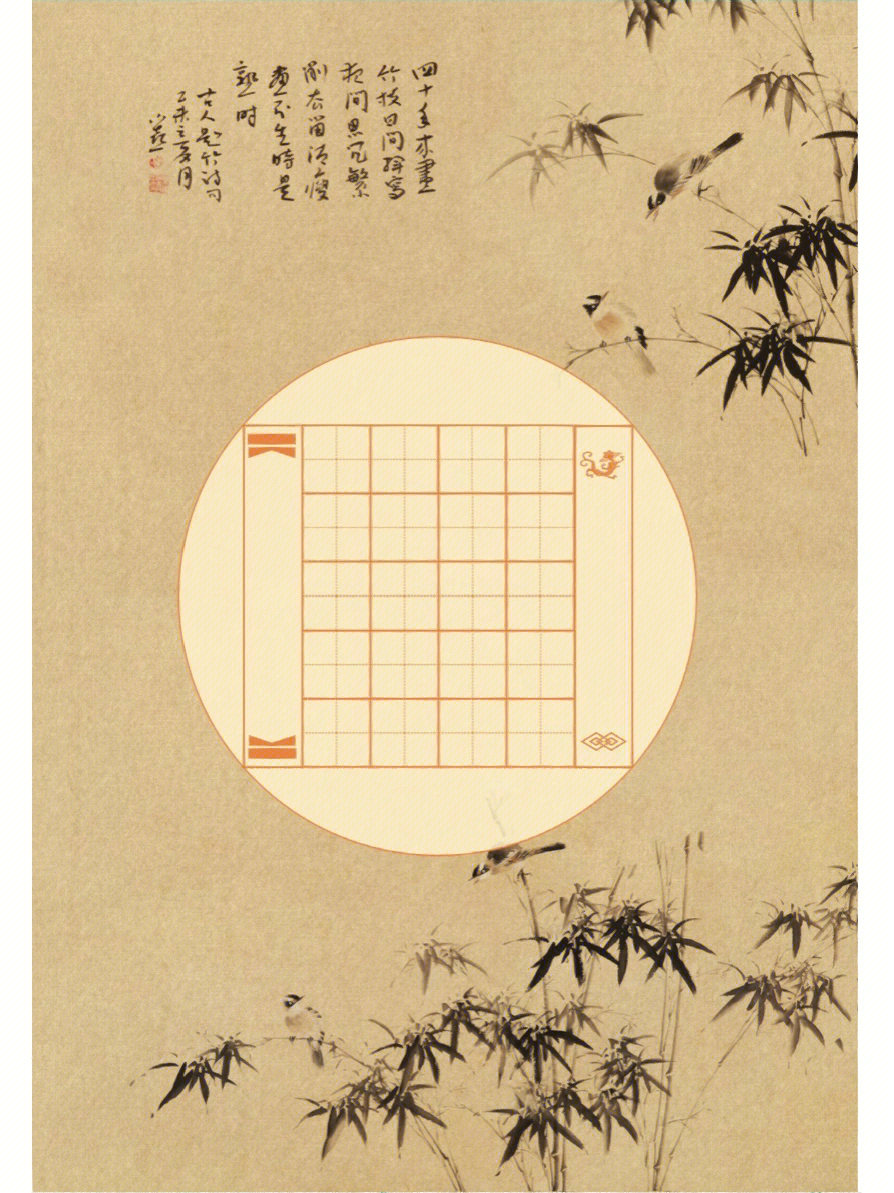 四十年来畫
竹枝日间挥寫
夜间思冗繁
削尽留清瘦
畫到生時是
熟时
古人题竹诗句
乙未之夏月